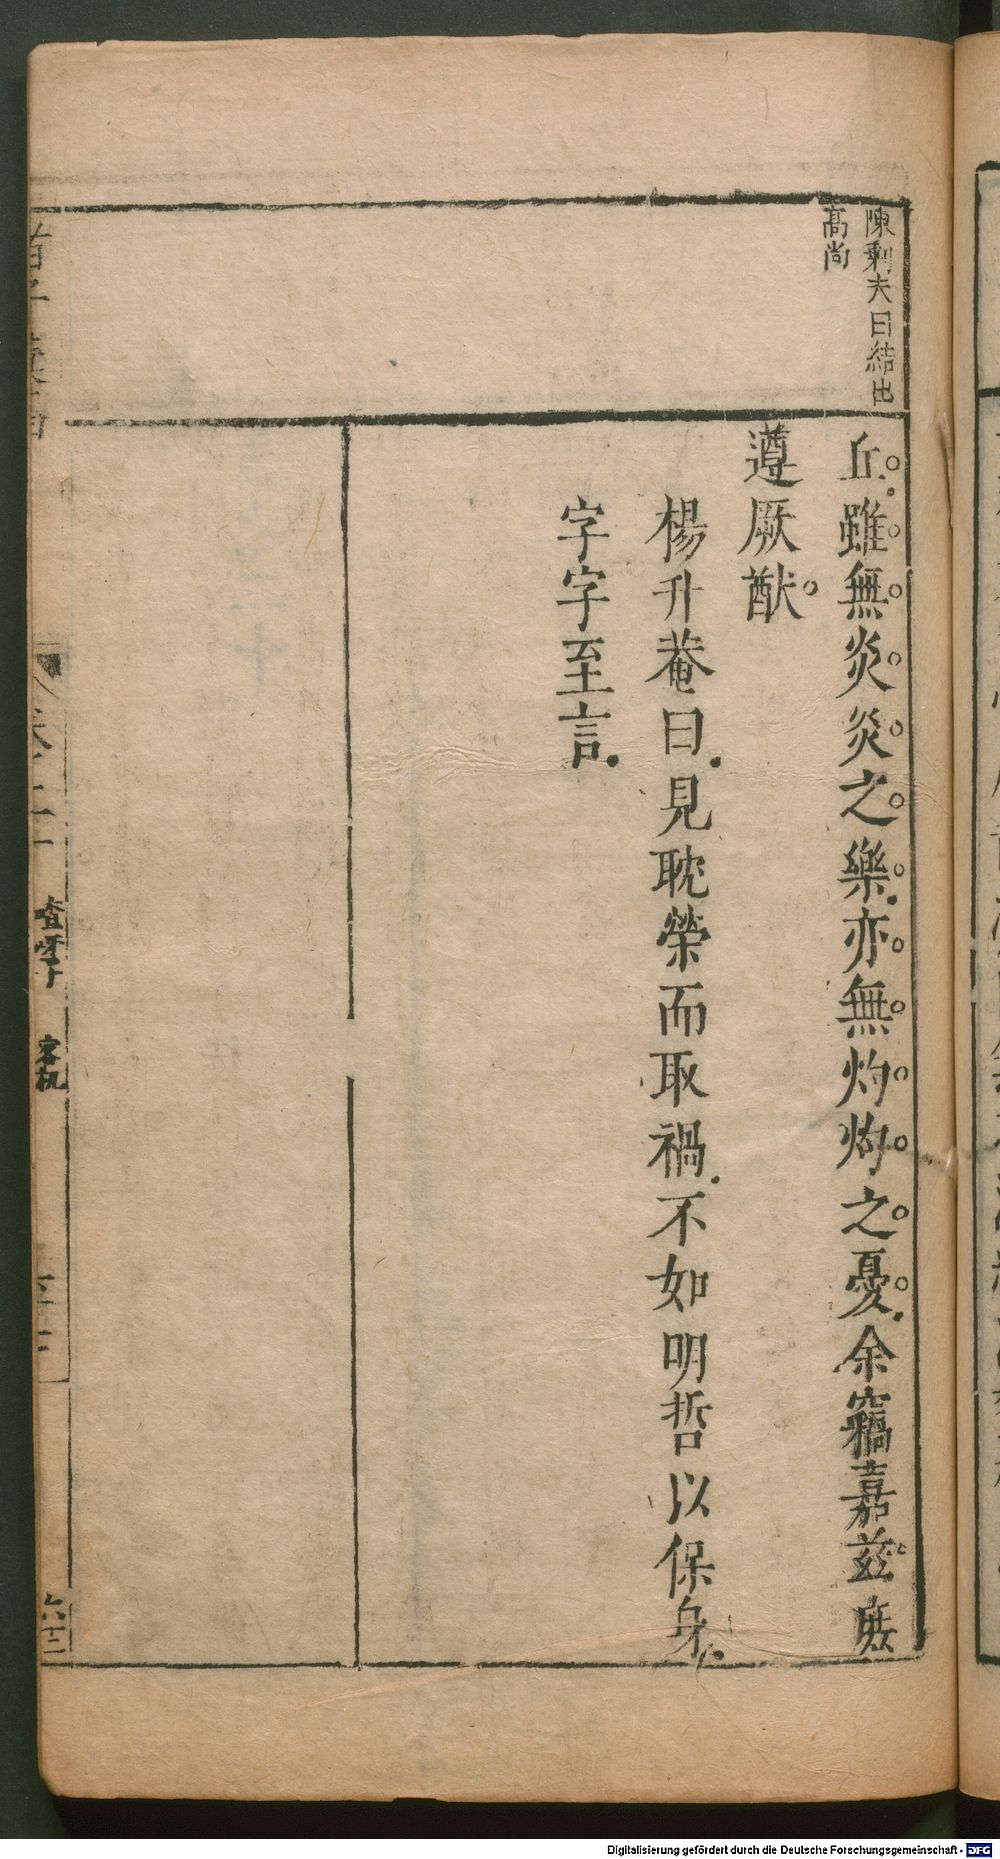 陳剩夫曰結出
高尚
丘雖無炎炎之樂亦無灼灼之憂余竊嘉茲庶
遵厥猷
楊升菴曰見耽榮而取禍不如明哲以保身
字字至言
六十二
Digitalisierung gefördert durch die Deutsche Forschungsgemeinschaft - DFG